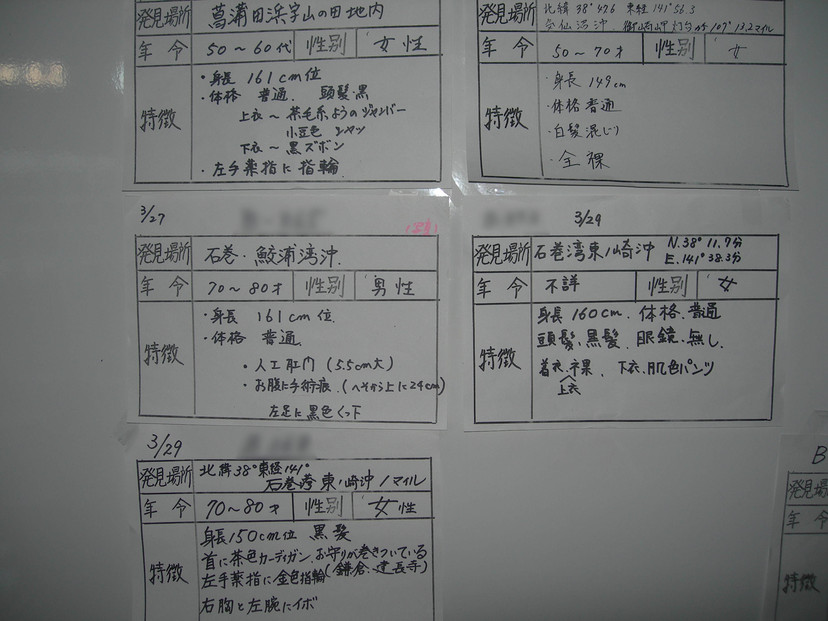 発見場所 菖蒲田浜字山の田地内
年令 50～60代 性別 女性
特徴
・身長 161cm位
・体格 普通. 頭髪.黒
上衣～茶毛糸ようのジャンパー
小豆色 シャツ
下衣～黒ズボン
・左手薬指に指輪.
発見場所 北緯 38°42.6 東経 141°56.3
気仙沼沖. 御崎岬灯台から107° 13.2マイル
年令 50～70才 性別 女
特徴
・身長 149cm
・体格普通
・白髪混じり
・全裸
3/27
発見場所 石巻・鮫浦湾沖.
年令 70～80才 性別 男性
特徴
・身長 161cm位.
・体格 普通.
・人工肛門 (5.5cm大)
・お腹に手術痕.(へそから上に24cm)
左足に黒色くつ下
3/29
発見場所 石巻湾東ノ崎沖 N.38°11.7分
E.141°38.3分
年令 不詳 性別 女
特徴
身長 160cm. 体格.普通
頭髪.黒髪. 眼鏡.無し.
着衣.半裸. 下衣.肌色パンツ
上衣
3/29
発見場所 北緯38°東経141°
石巻湾東ノ崎沖1マイル
年令 70～80才 性別 女性
特徴
身長150cm位 黒髪
首に茶色カーディガン.お守りが巻きついている
左手薬指に金色指輪 (鎌倉.建長寺)
右胸と左腕にイボ
B
発見場
年令
特徴